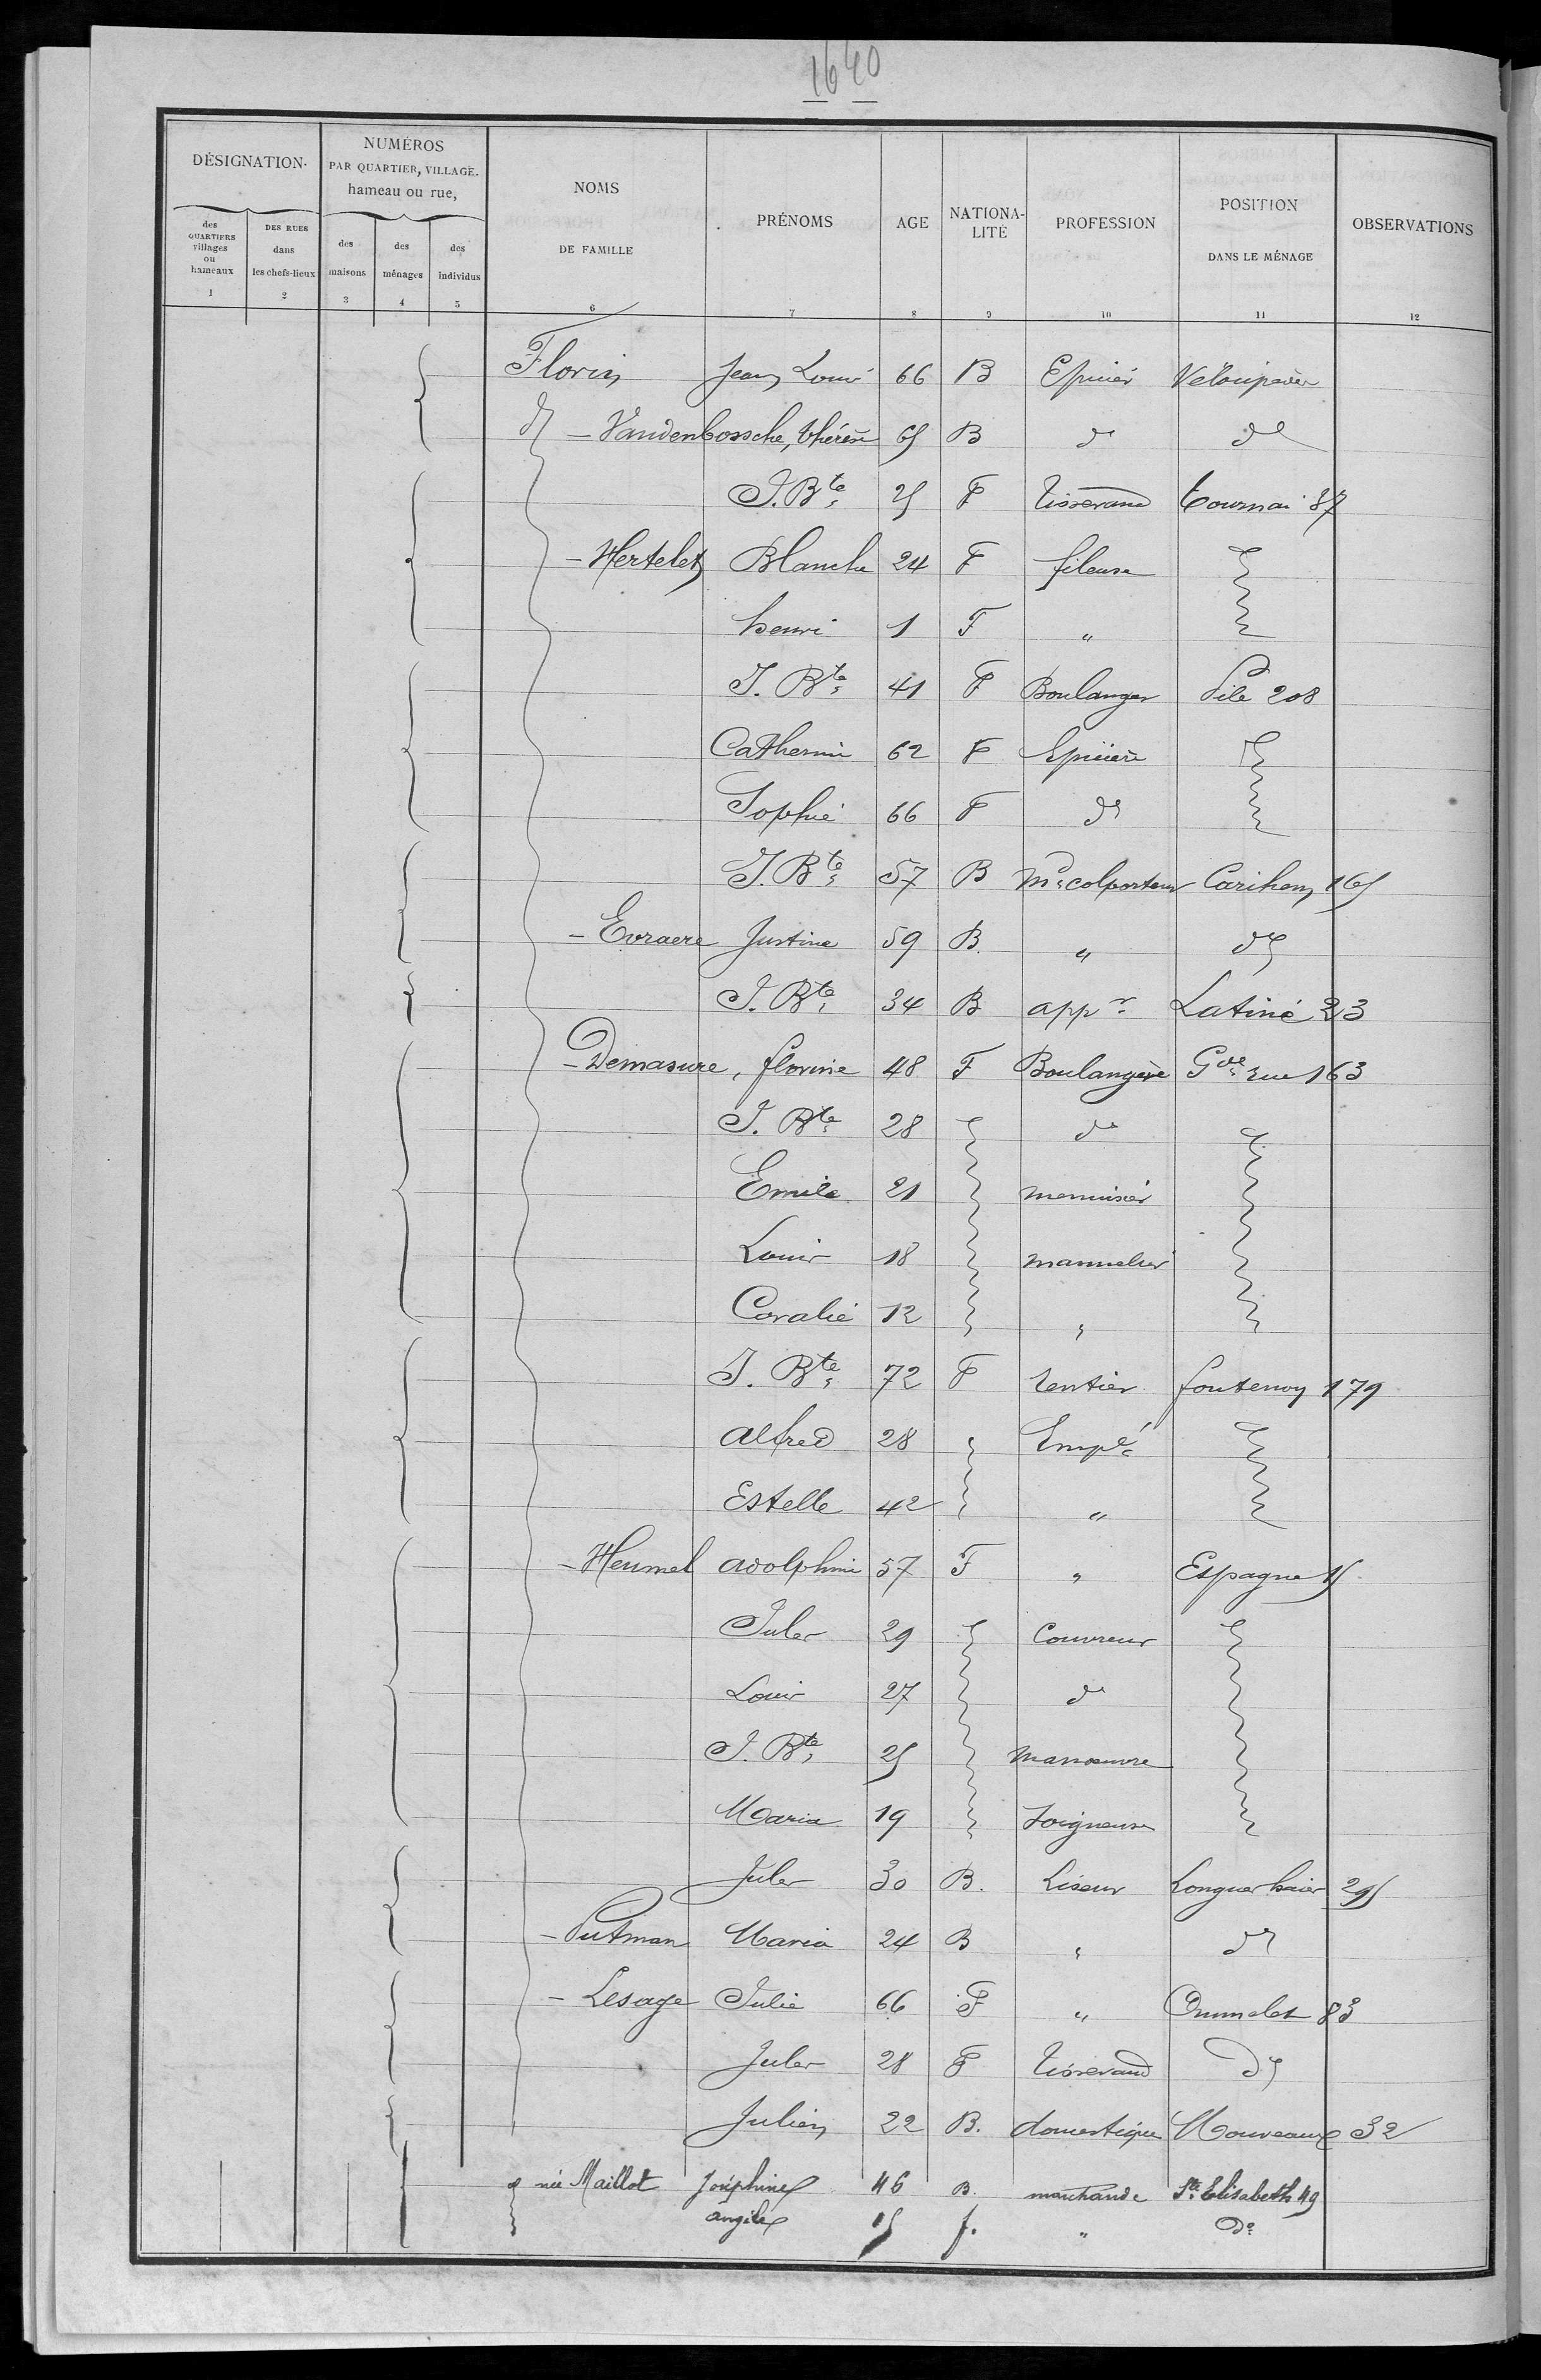 1640
DÉSIGNATION. NUMÉROS PAR QUARTIER, VILLAGE. hameau ou rue, NOMS DE FAMILLE PRÉNOMS AGE NATIONALITÉ PROFESSION POSITION DANS LE MÉNAGE OBSERVATIONS
des QUARTIERS villages ou hameaux DES RUES dans les chefs-lieux des maisons des ménages des individus
1 2 3 4 5 6 7 8 9 10 11 12
Florin Jean Louis 66 B Epicier
d° – Vandenbossche, thérèse 65 B d° d°
J. Bte 25 F tisserand tournai 87
– Hertelet Blanche 24 F fileuse
henri 1 F "
J. Bte 41 F Boulanger Pile 208
Catherine 62 F Epicière
Sophie 66 F d°
J. Bte 57 B Md colporteur Carihem 165
– Evraere Justine 59 B. " d°
J. Bte 34 B appr Latine 23
– Demasure, florine 48 F Boulangère Gde rue 163
J. Bte 28 d°
Emile 21 menuisier
Louis 18 mannelier
Coralie 12 "
J. Bte 72 F rentier fontenoy 179
Alfred 28 Empé
Estelle 42 "
– Heumel Adolphine 57 F " Espagne 15
Jules 29 Couvreur
Louis 27 d°
J. Bte 25 Manœuvre
Maria 19 Soigneuse
Jules 30 B. Liseur Longues haies 295
– Putman Maria 24 B " d°
– Lesage Julie 66 F " Ommelet 83
Jules 28 F tisserand d°
Julien 22 B. domestique Mouveaux 32
née Maillot Joséphine 46 B. marchande Ste Elisabeth 49
Angèle 15 f. " d°